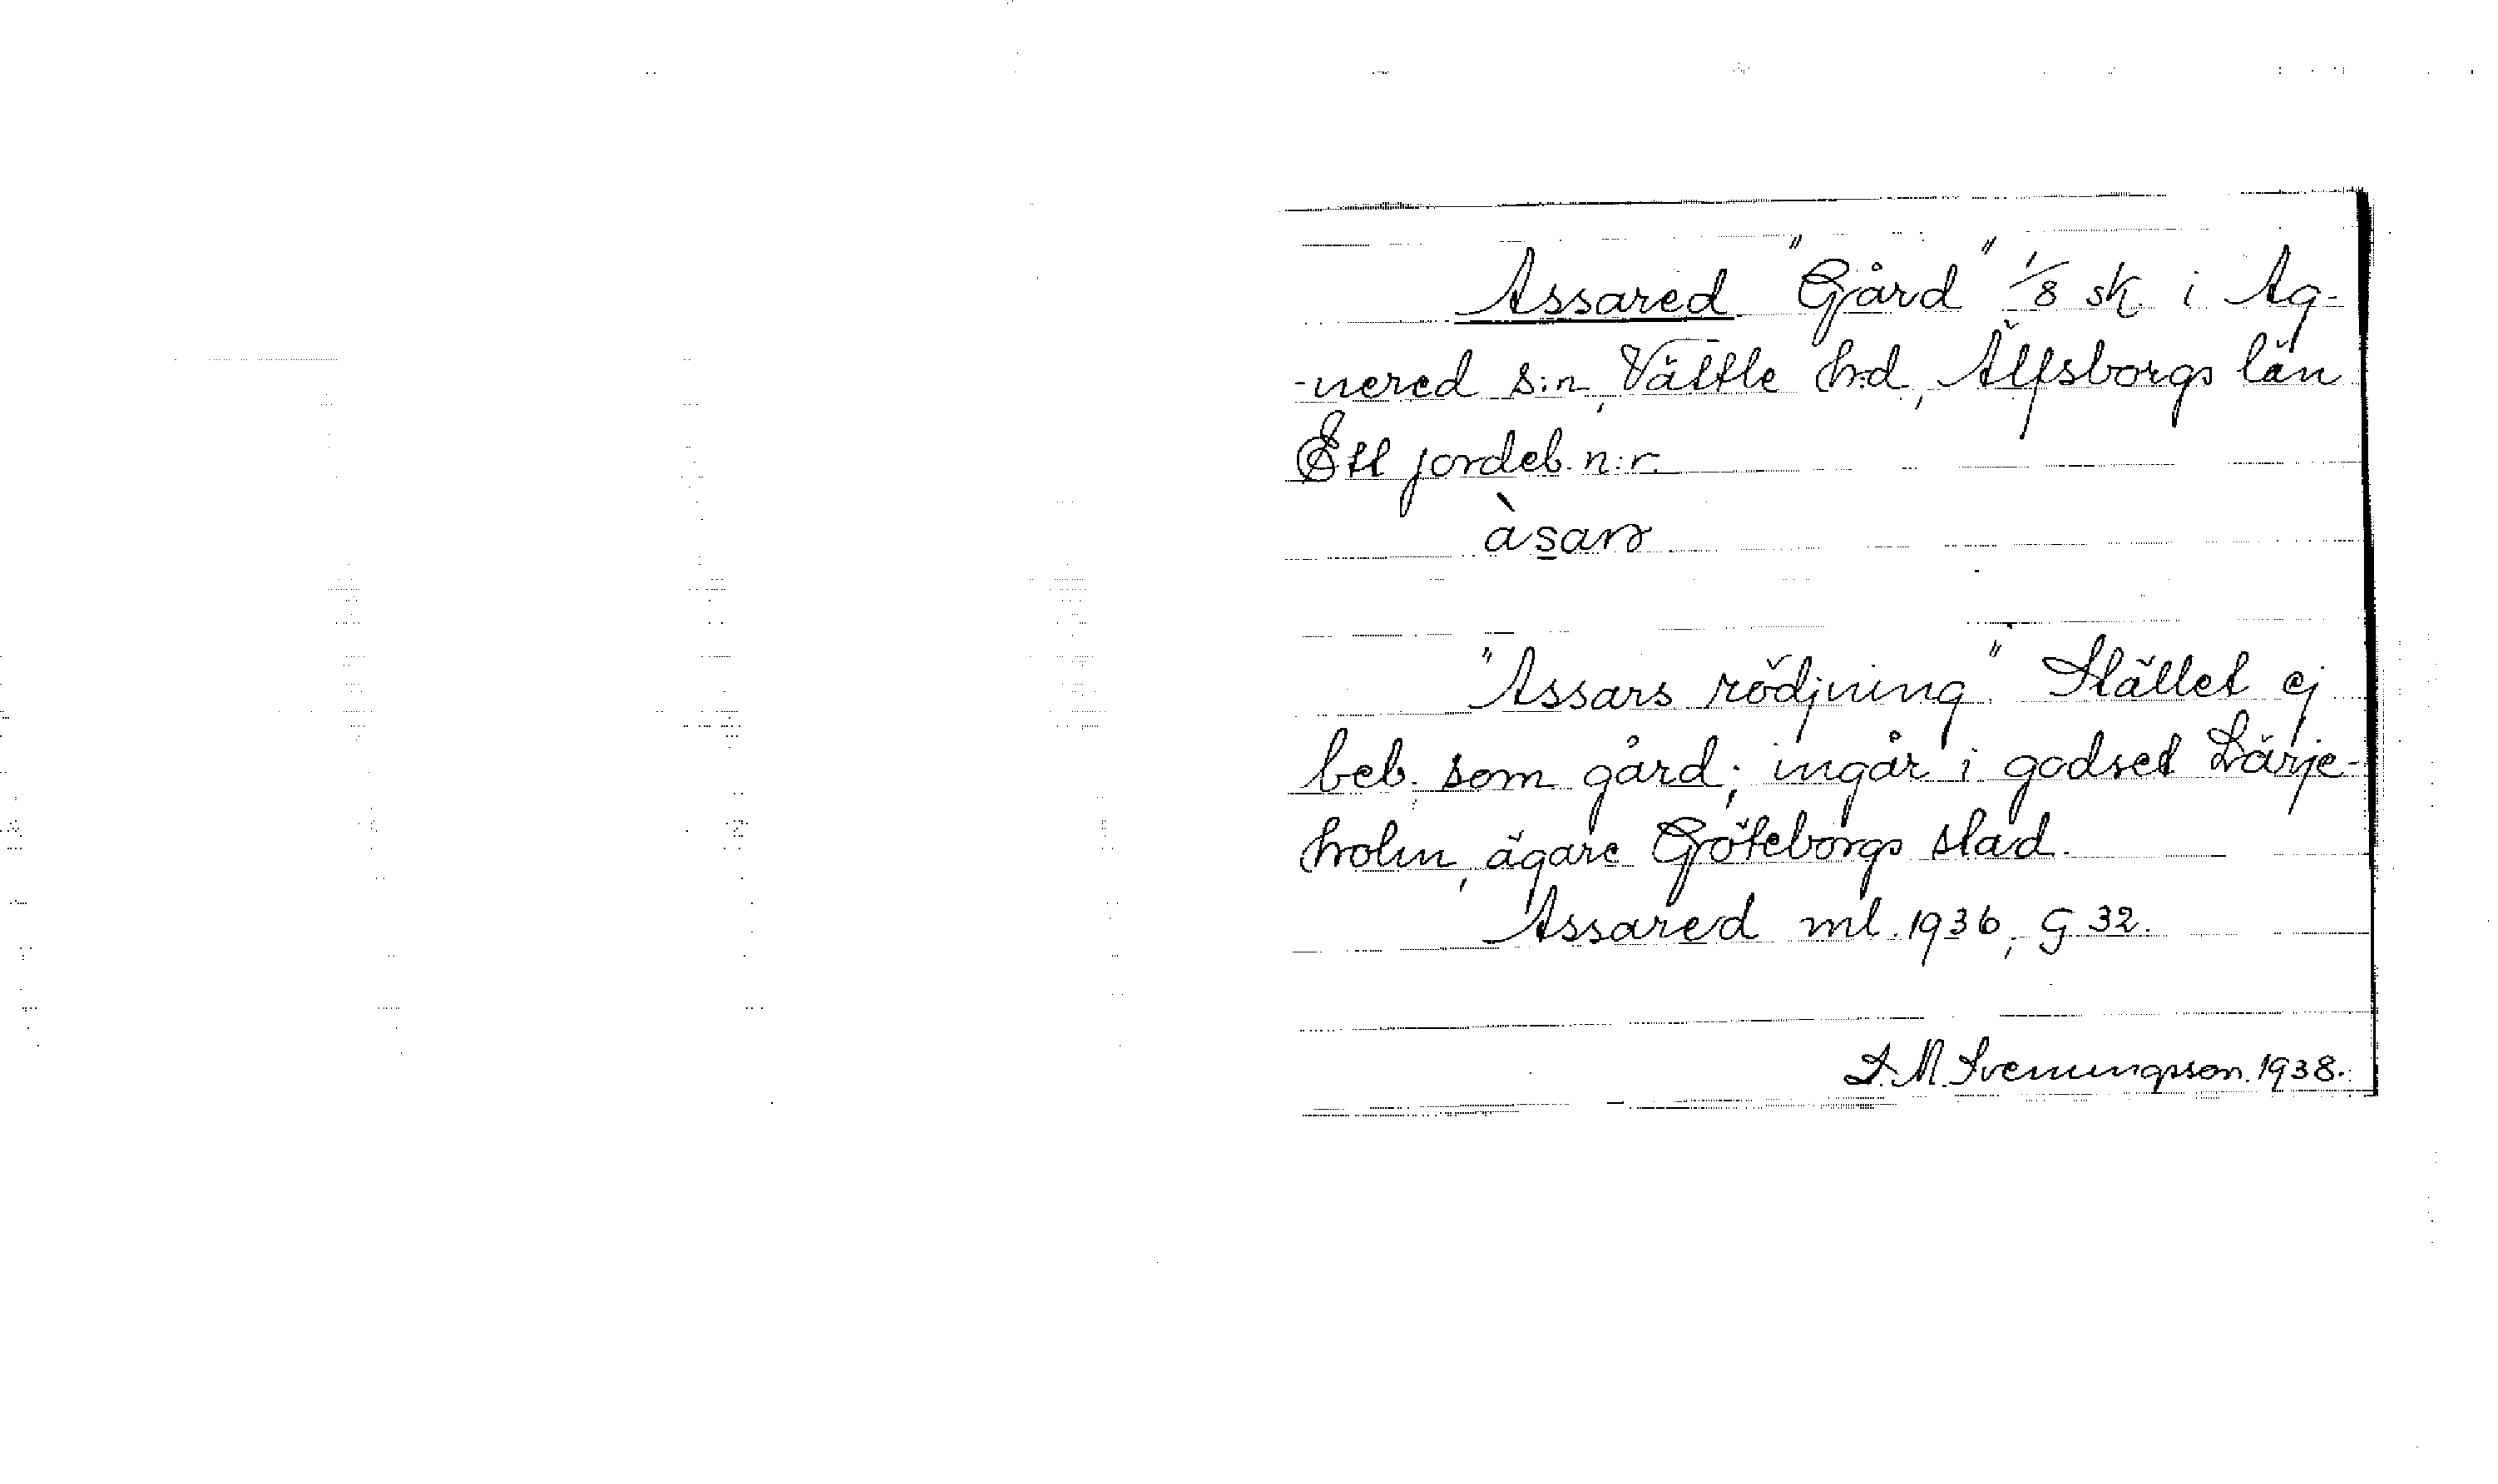 Assared "Gård" 1/8 sk. i Ag-
-nered s:n, Vättle h:d, Älfsborgs län
Ett jordeb. n:r.
àsarə
"Assars rödjning". Stället ej
beb. som gård; ingår i godset Lärje-
holm, ägare Göteborgs stad.
Assared ml. 1936, G 32.
I. M. Svenungsson. 1938.